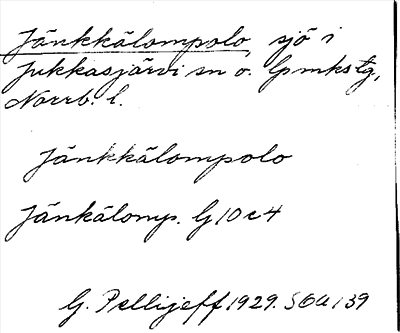 Jänkkälompolo, sjö i
Jukkasjärvi sn o. lpmkstg,
Norrb. l.
Jänkkälompolo
Jänkälomp. G 10 c 4
G. Pellijeff 1929. S 6a, 39